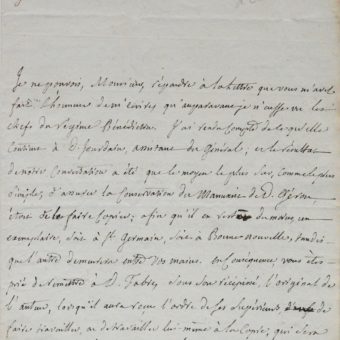 Je ne pouvois, Monsieur, répondre à la lettre que vous m'avez
fait l'honneur de m'écrire qu'auparavant je n'eusse vu les
Chefs du régime Bénédictin. J'ai rendu compte de ce qu'elle
contient à D. Jourdain, assistant du Général; et le résultat
de notre Conversation a été que le moyen le plus sur, comme le plus
simple, d'assurer la Conservation du Manuscrit de D.
étoit de le faire copier; afin qu'il en restat du moins un
exemplaire, soit à St. Germain, soit à Bonne-nouvelle, tandis
que l'autre demeurera entre vos mains. En conséquence, vous etes
prié de remettre à D. Fabre, sous son récépissé, l'original de
l'auteur, lorsqu'il aura reçu l'ordre de ses Supérieurs de
faire travailler, ou de travailler lui-même à la Copie, qui sera